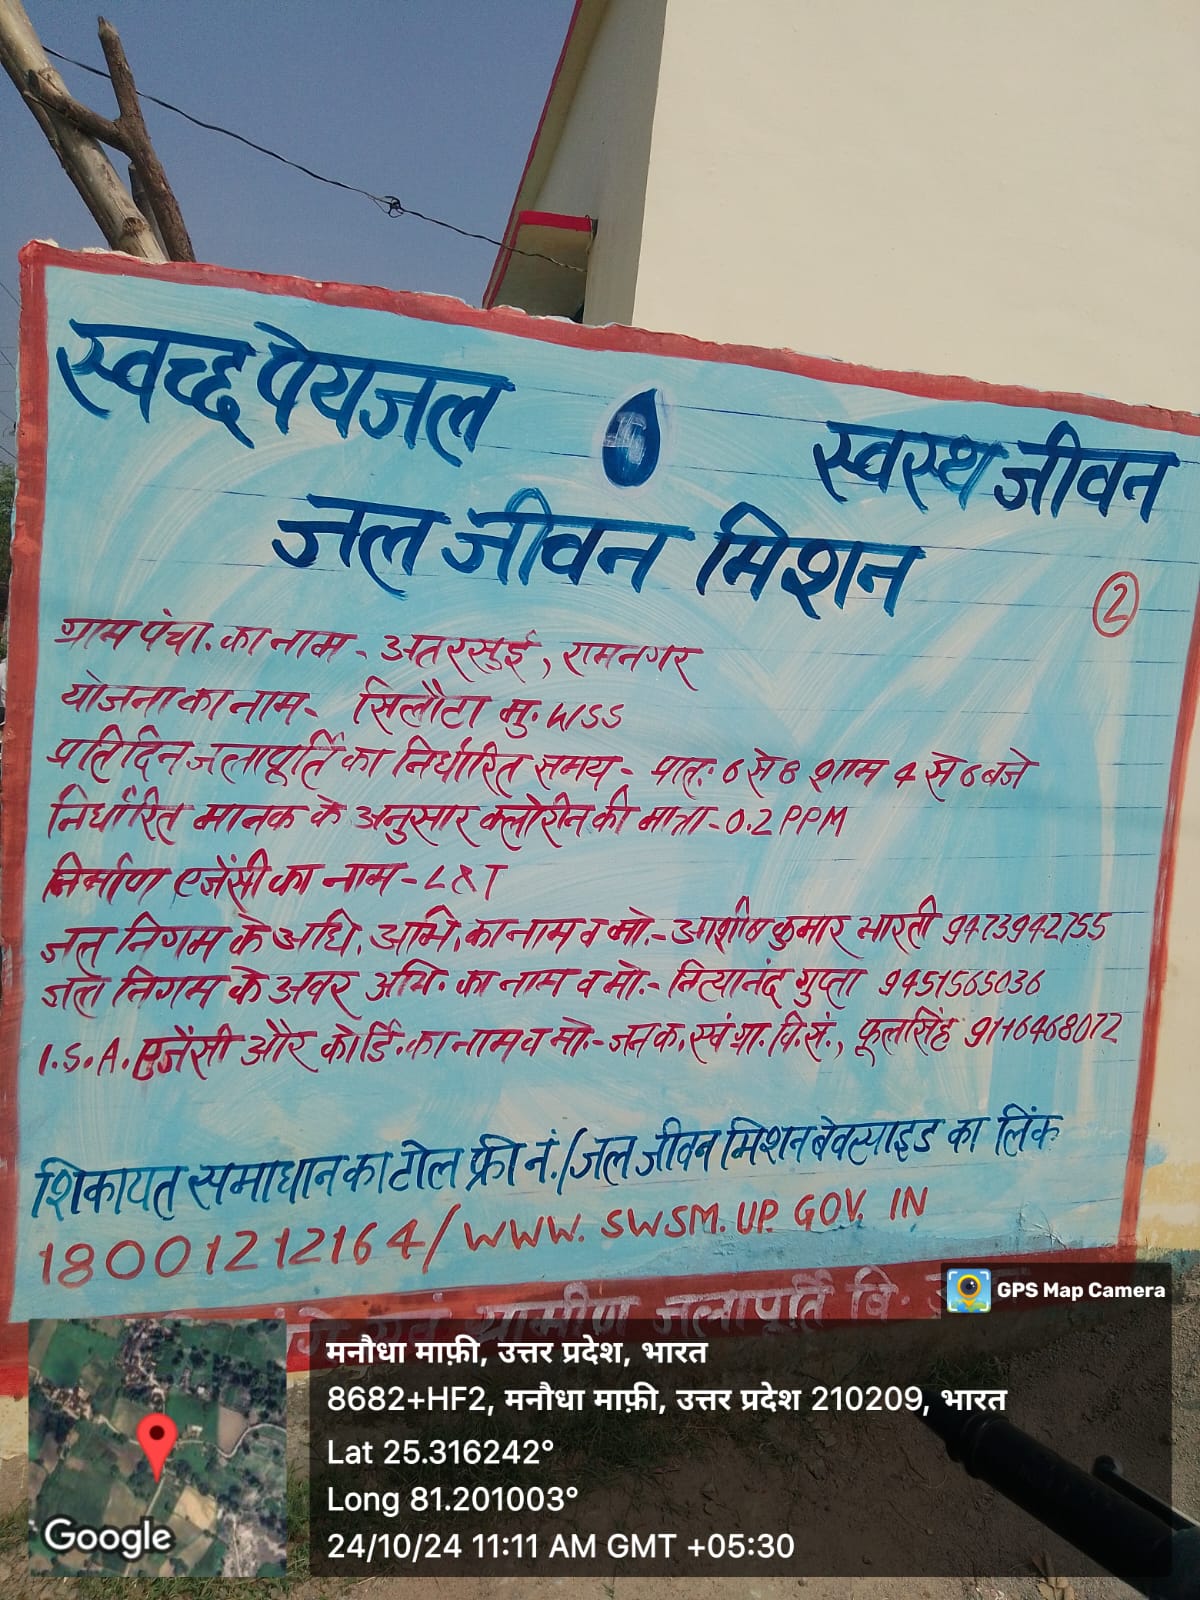 स्वच्छ पेयजल
स्वस्थ जीवन
जल जीवन मिशन
2
ग्राम पंचा. का नाम - अतरसुई, रामनगर
योजना का नाम - सिलौटा मु. WSS
प्रतिदिन जलापूर्ति का निर्धारित समय - प्रातः 6 से 8 शाम 4 से 6 बजे
निर्धारित मानक के अनुसार क्लोरीन की मात्रा - 0.2 PPM
निर्माण एजेंसी का नाम - L&T
जल निगम के अधि. अभि. का नाम व मो. - आशीष कुमार भारती 9473942755
जल निगम के अवर अभि. का नाम व मो. - नित्यानंद गुप्ता 9451565036
I.S.A. एजेंसी और कोर्डि. का नाम व मो. - जन क. स्वं. ग्रा. वि. सं., फूलसिंह 9116468072
शिकायत समाधान का टोल फ्री नं. / जल जीवन मिशन बेवत्साइड का लिंक
18001212164 / WWW. SWSM. UP. GOV. IN
ग्रामीण जलापूर्ति वि.
GPS Map Camera
मनौधा माफ़ी, उत्तर प्रदेश, भारत
8682+HF2, मनौधा माफ़ी, उत्तर प्रदेश 210209, भारत
Lat 25.316242°
Long 81.201003°
24/10/24 11:11 AM GMT +05:30
Google